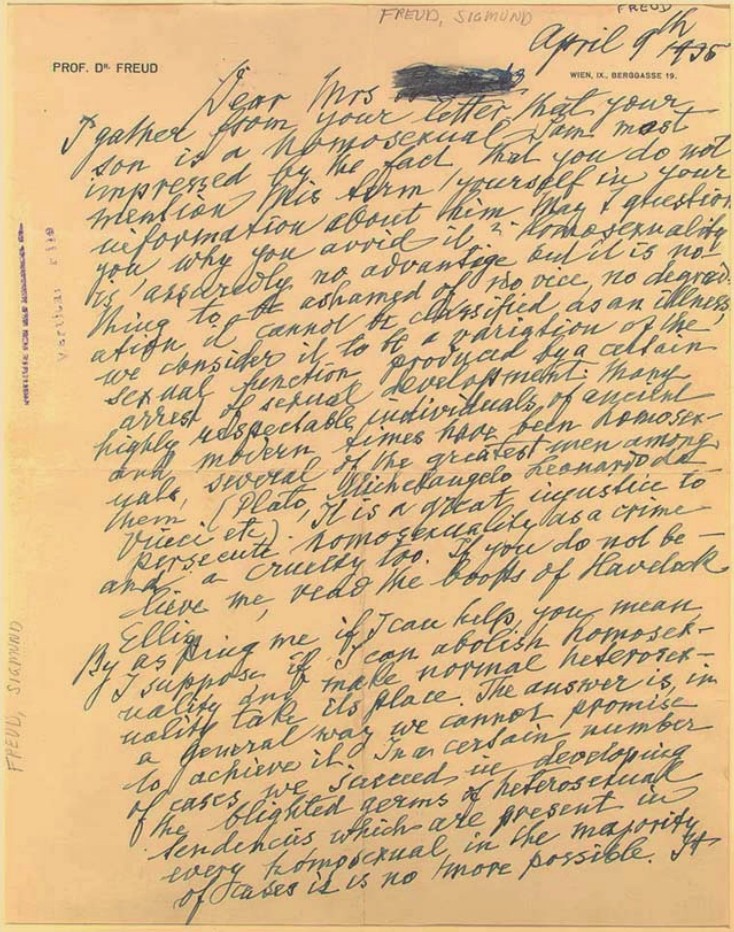 FREUD, SIGMUND
FREUD
April 9th 1935
PROF. DR. FREUD
WIEN, IX., BERGGASSE 19.
Dear Mrs
I gather from your letter that your
son is a homosexual. I am most
impressed by the fact that you do not
mention this term yourself in your
information about him. May I question
you why you avoid it? Homosexuality
is assuredly no advantage but it is no-
thing to be ashamed of, no vice, no degrad-
ation, it cannot be classified as an illness,
we consider it to be a variation of the
sexual function produced by a certain
arrest of sexual development. Many
highly respectable individuals of ancient
and modern times have been homosex-
uals, several of the greatest men among
them (Plato, Michelangelo, Leonardo da
Vinci etc). It is a great injustice to
persecute homosexuality as a crime
and a cruelty too. If you do not be-
lieve me, read the books of Havelock
Ellis.
By asking me if I can help, you mean
I suppose if I can abolish homosex-
uality and make normal heterosex-
uality take its place. The answer is, in
a general way we cannot promise
to achieve it. In a certain number
of cases we succeed in developing
the blighted germs of heterosexual
tendencies which are present in
every homosexual in the majority
of cases it is no more possible. It
FREUD, SIGMUND